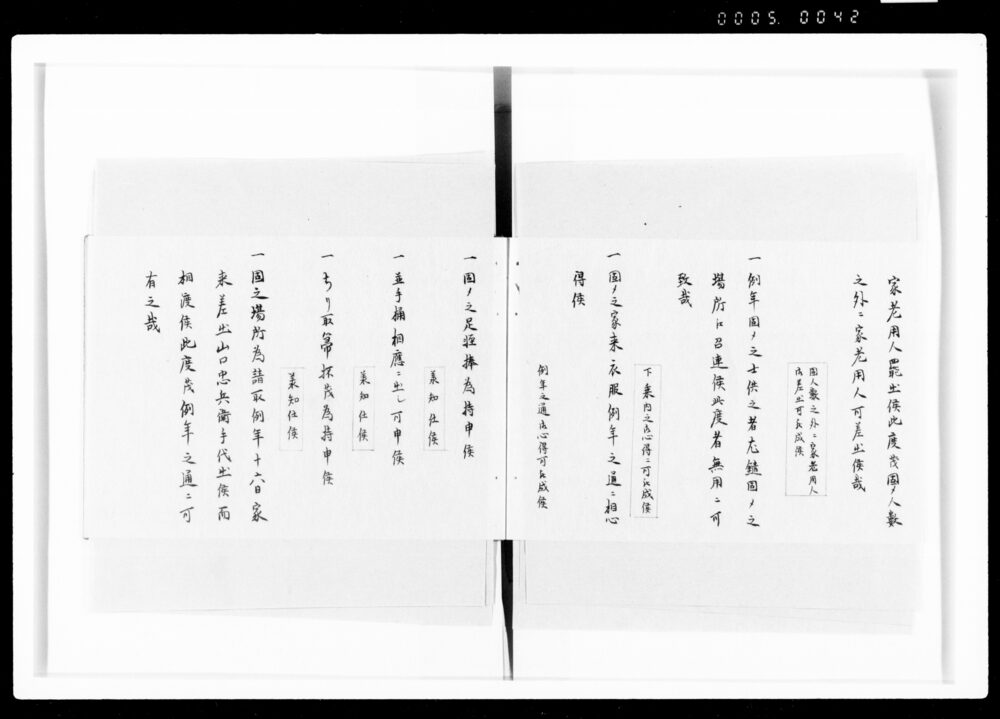 0005. 0042
家老用人罷出候此度茂固メ人数
之外ニ家老用人可差出候哉
固人数之外ニ家老用人
可差出可被成候
一例年固メ之士供之者尤鑓固メ之
場所江召連候此度者無用ニ可
致哉
下乗内之心得ニ可被成候
一固メ之家来衣服例年之通ニ相心
得候
例年之通心得可被成候
一固メ之足軽捧為持申候
承知仕候
一並手桶相應ニ出し可申候
承知仕候
一ちり取箒抔茂為持申候
承知仕候
一固之場所為請取例年十六日家
来差出山口忠兵衛手代出候而
相渡候此度茂例年之通ニ可
有之哉